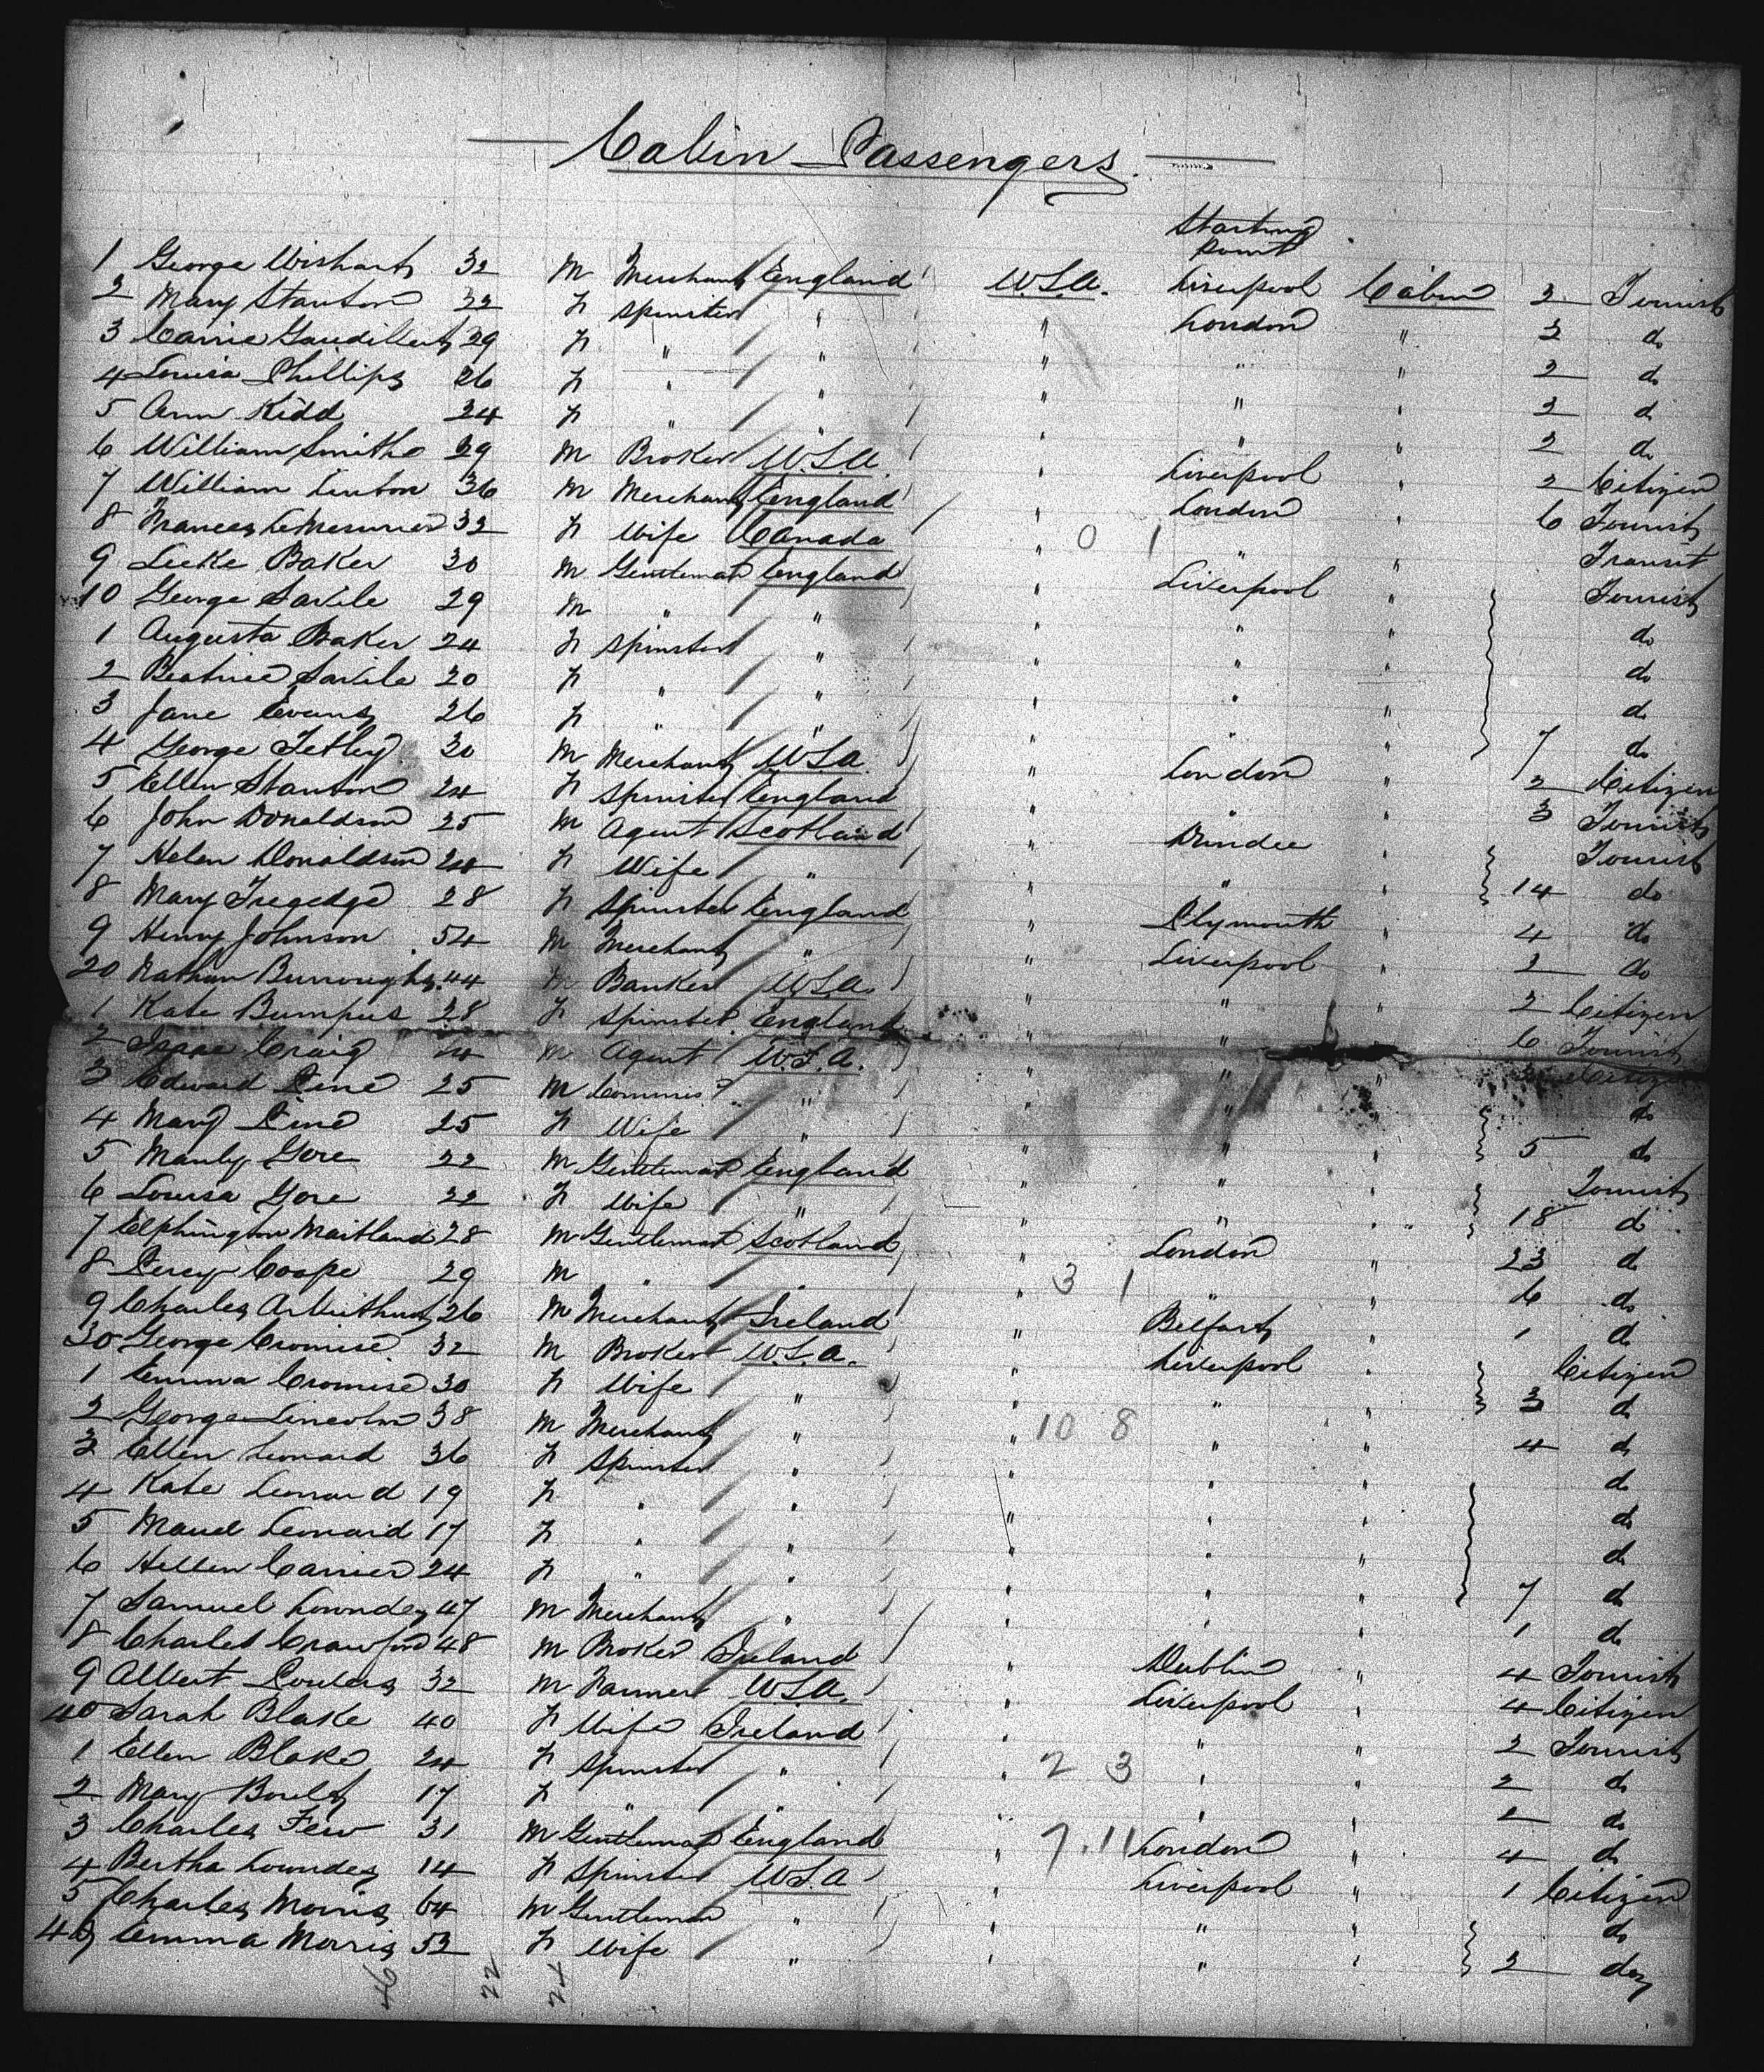 Cabin Passengers.
Starting
point
1 George Wishart 32 M Merchant England U.S.A. Liverpool Cabin 2 Tourist
2 Mary Stanton 22 F Spinster " " London " 2 do
3 Carrie 29 F " " " " " 2 do
4 Louisa Phillips 26 F " " " " " 2 do
5 Ann Kidd 24 F " " " " " 2 do
6 William Smith 29 M Broker U.S.A. " Liverpool " 2 Citizen
7 William Linton 36 M Merchant England " London " 6 Tourist
8 Frances LeMesurier 32 F Wife Canada " 0 1 " " Transit
9 Leeke Baker 30 M Gentleman England " Liverpool " Tourist
10 George Savile 29 M " " " " " do
1 Augusta Baker 24 F Spinster " " " " do
2 Beatrice Savile 20 F " " " " " do
3 Jane Evans 26 F " " " " " 7 do
4 George Tetley 30 M Merchant U.S.A. " London " 2 Citizen
5 Ellen Stanton 24 F Spinster England " " " 3 Tourist
6 John Donaldson 25 M Agent Scotland " Dundee " Tourist
7 Helen Donaldson 24 F Wife " " " " 14 do
8 Mary 28 F Spinster England " Plymouth " 4 do
9 Henry Johnson 54 M Merchant " " Liverpool " 2 do
20 Nathan Burroughs 44 M Banker U.S.A. " " " 2 Citizen
1 Kate Bumpus 28 F Spinster England " " " 6 Tourist
2 Isaac Craig 24 M Agent U.S.A. " " " Citizen
3 Edward Pine 25 M Commis " " " " do
4 Mary Pine 25 F Wife " " " " 5 do
5 Manly Gore 22 M Gentleman England " " " Tourist
6 Louisa Gore 22 F Wife " " " " 18 do
7 Elphington Maitland 28 M Gentleman Scotland " London " 23 do
8 Percy Coope 29 M " " " 3 1 " " 6 do
9 Charles Arbuthnot 26 M Merchant Ireland " Belfast " 1 do
30 George Cromise 32 M Broker U.S.A. " Liverpool " Citizen
1 Emma Cromise 30 F Wife " " " " 3 do
2 George Lincoln 38 M Merchant " " 10 8 " " 4 do
3 Ellen Leonard 36 F Spinster " " " " do
4 Kate Leonard 19 F " " " " " do
5 Maud Leonard 17 F " " " " " do
6 Hellen Carrier 24 F " " " " " 7 do
7 Samuel Lowndes 47 M Merchant " " " " 1 do
8 Charles Crawford 48 M Broker Ireland " Dublin " 4 Tourist
9 Albert 32 M Farmer U.S.A. " Liverpool " 4 Citizen
40 Sarah Blake 40 F Wife Ireland " " " 2 Tourist
1 Ellen Blake 24 F Spinster " " 2 3 " " 2 do
2 Mary 17 F " " " " " 2 do
3 Charles Few 31 M Gentleman England 7.11 London " 4 do
4 Bertha Lowndes 14 F Spinster U.S.A " Liverpool " 1 Citizen
5 Charles Morris 64 M Gentleman " " " " do
46 Emma Morris 52 F Wife " " " " 2 do
46 22 24